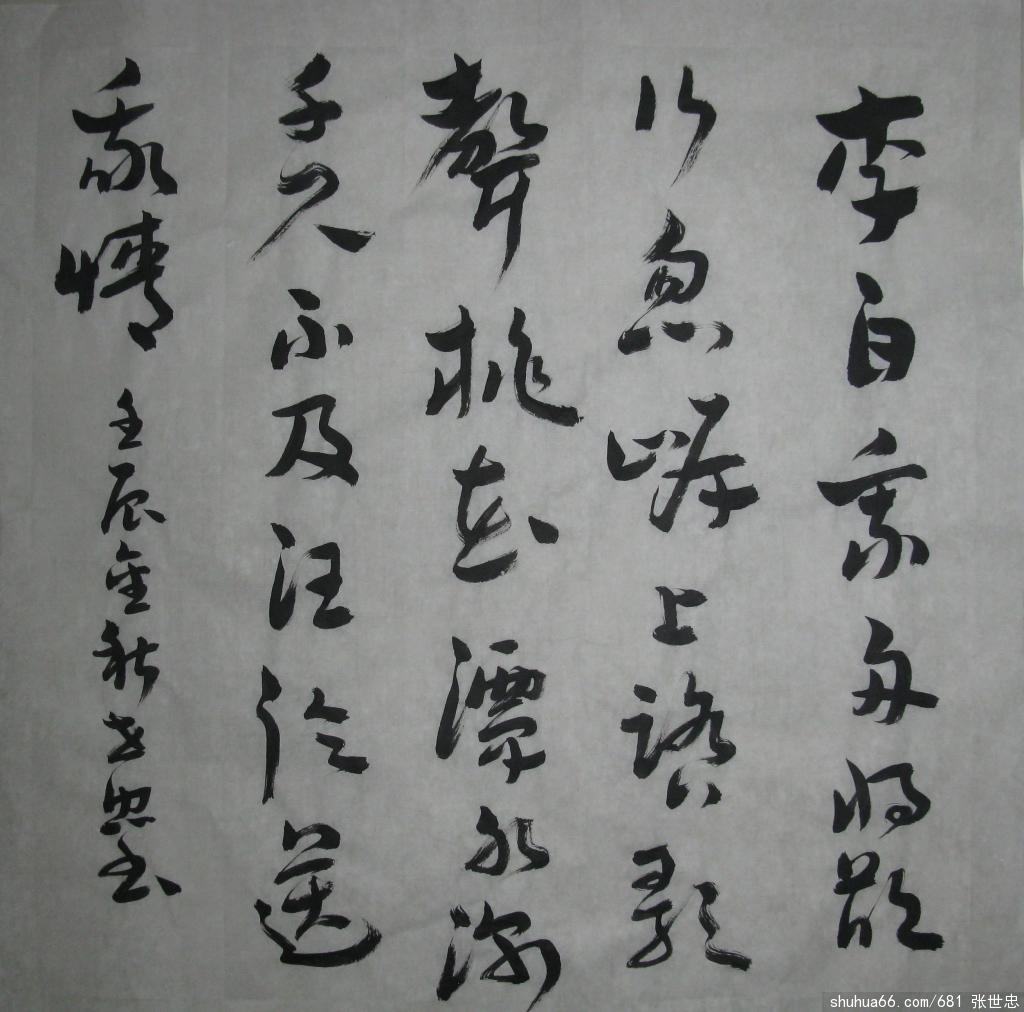 李白乘舟将欲
行忽岸上踏歌
聲桃花潭水深
千尺不及汪伦送
我情 壬辰金秋世忠书
shuhua66.com/681 张世忠